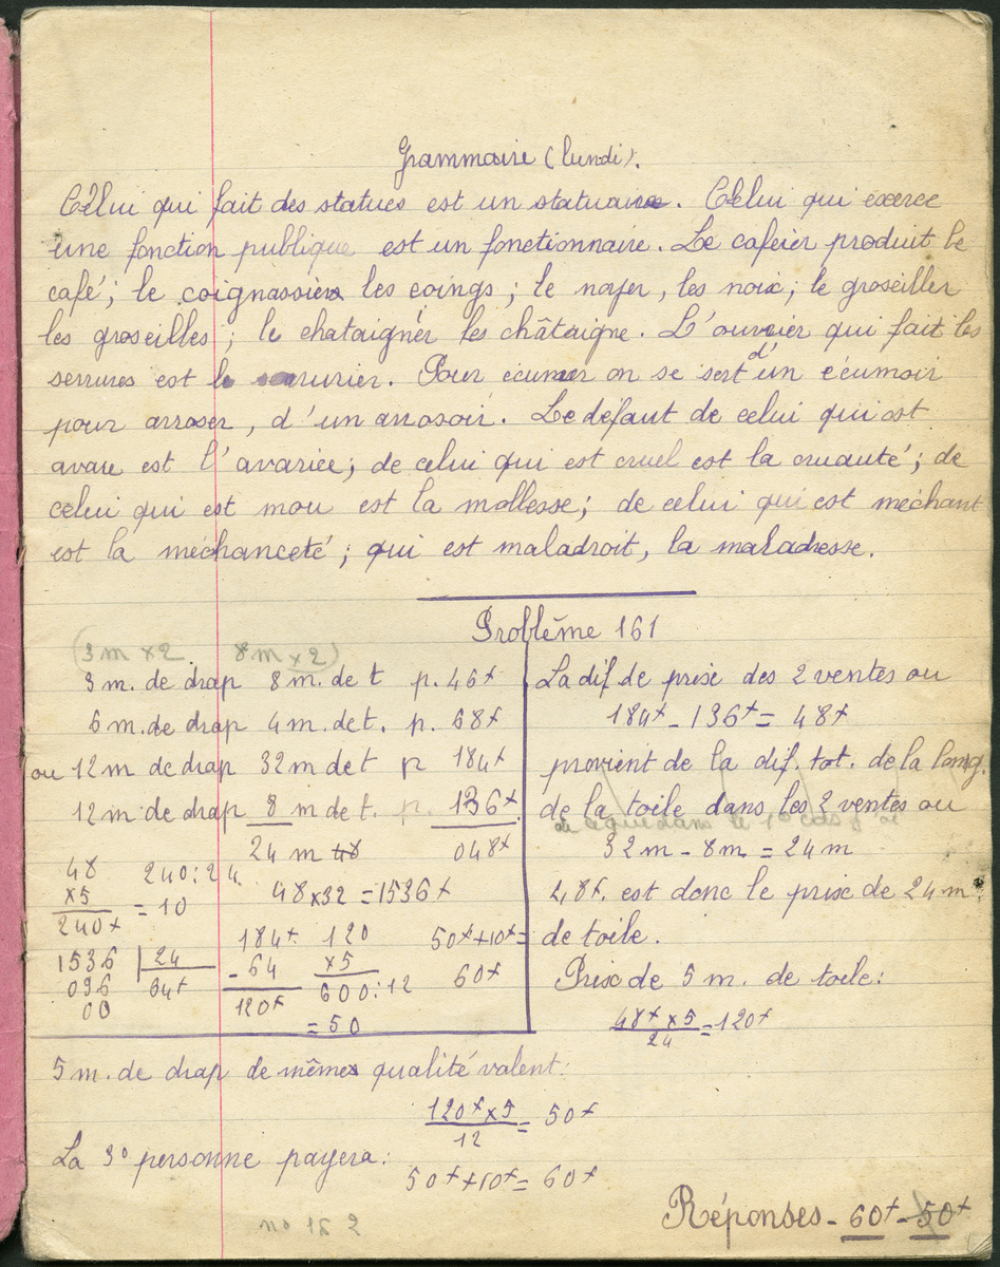 Grammaire (lundi).
Celui qui fait des statues est un statuaire. Celui qui exerce
une fonction publique est un fonctionnaire. Le caféier produit le
café ; le coignassier les coings ; le noyer, les noix ; le groseiller
les groseilles ; le chataignér les châtaigne. L'ouvrier qui fait les
serrures est le serrurier. Pour écumer on se sert d'un écumoir
pour arroser, d'un arrosoir. Le défaut de celui qui est
avare est l'avarice ; de celui qui est cruel est la cruauté ; de
celui qui est mou est la mollesse ; de celui qui est méchant
est la méchanceté ; qui est maladroit, la maladresse.
Problême 161
(3m x2 8m x2)
3 m. de drap 8 m. de t p. 46f
6 m. de drap 4 m. de t. p. 68f
ou 12 m de drap 32 m de t p 184f
12 m de drap 8 m de t. p. 136f
24 m 48 048f
48 240 : 24
x5 = 10
240f
48 x 32 = 1536f
1536 | 24
096 64f
00
184f
- 64
120f
120
x5
600 : 12
= 50
50f + 10f =
60f
La dif. de prix des 2 ventes ou
184f - 136f = 48f
provient de la dif. tot. de la long.
de la toile dans les 2 ventes ou
32m - 8m = 24m
48f. est donc le prix de 24 m
de toile.
Prix de 5 m. de toile :
48f x 5 = 120f
24
5 m. de drap de même qualité valent :
120f x 5 = 50f
12
La 3e personne payera :
50f + 10f = 60f
Réponses - 60f - 50f
no 162